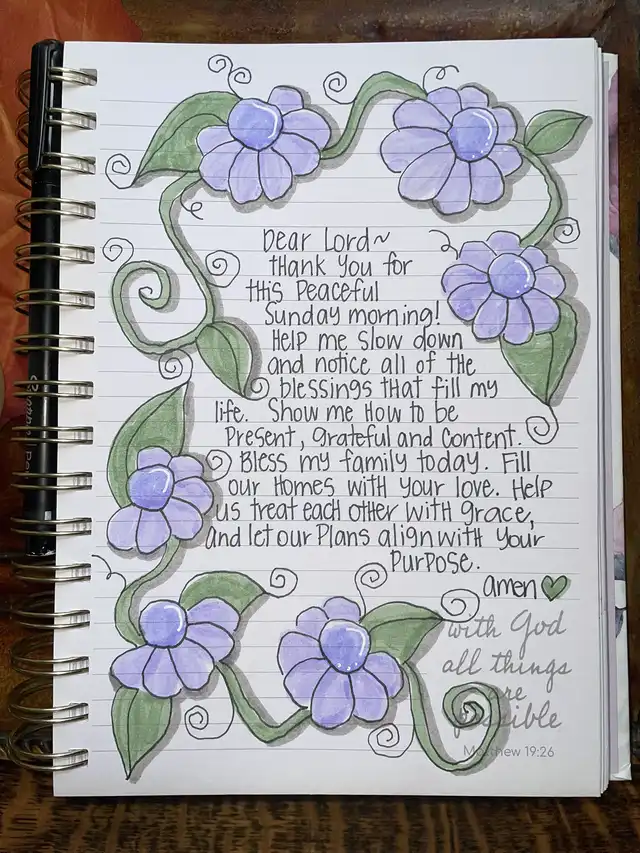 Dear Lord~
thank you for
this Peaceful
Sunday morning!
Help me slow down
and notice all of the
blessings that fill my
life. Show me how to be
Present, grateful and content.
Bless my family today. Fill
our Homes with your love. Help
us treat each other with grace,
and let our Plans align with your
Purpose.
amen
with God
all things
are
possible
Matthew 19:26